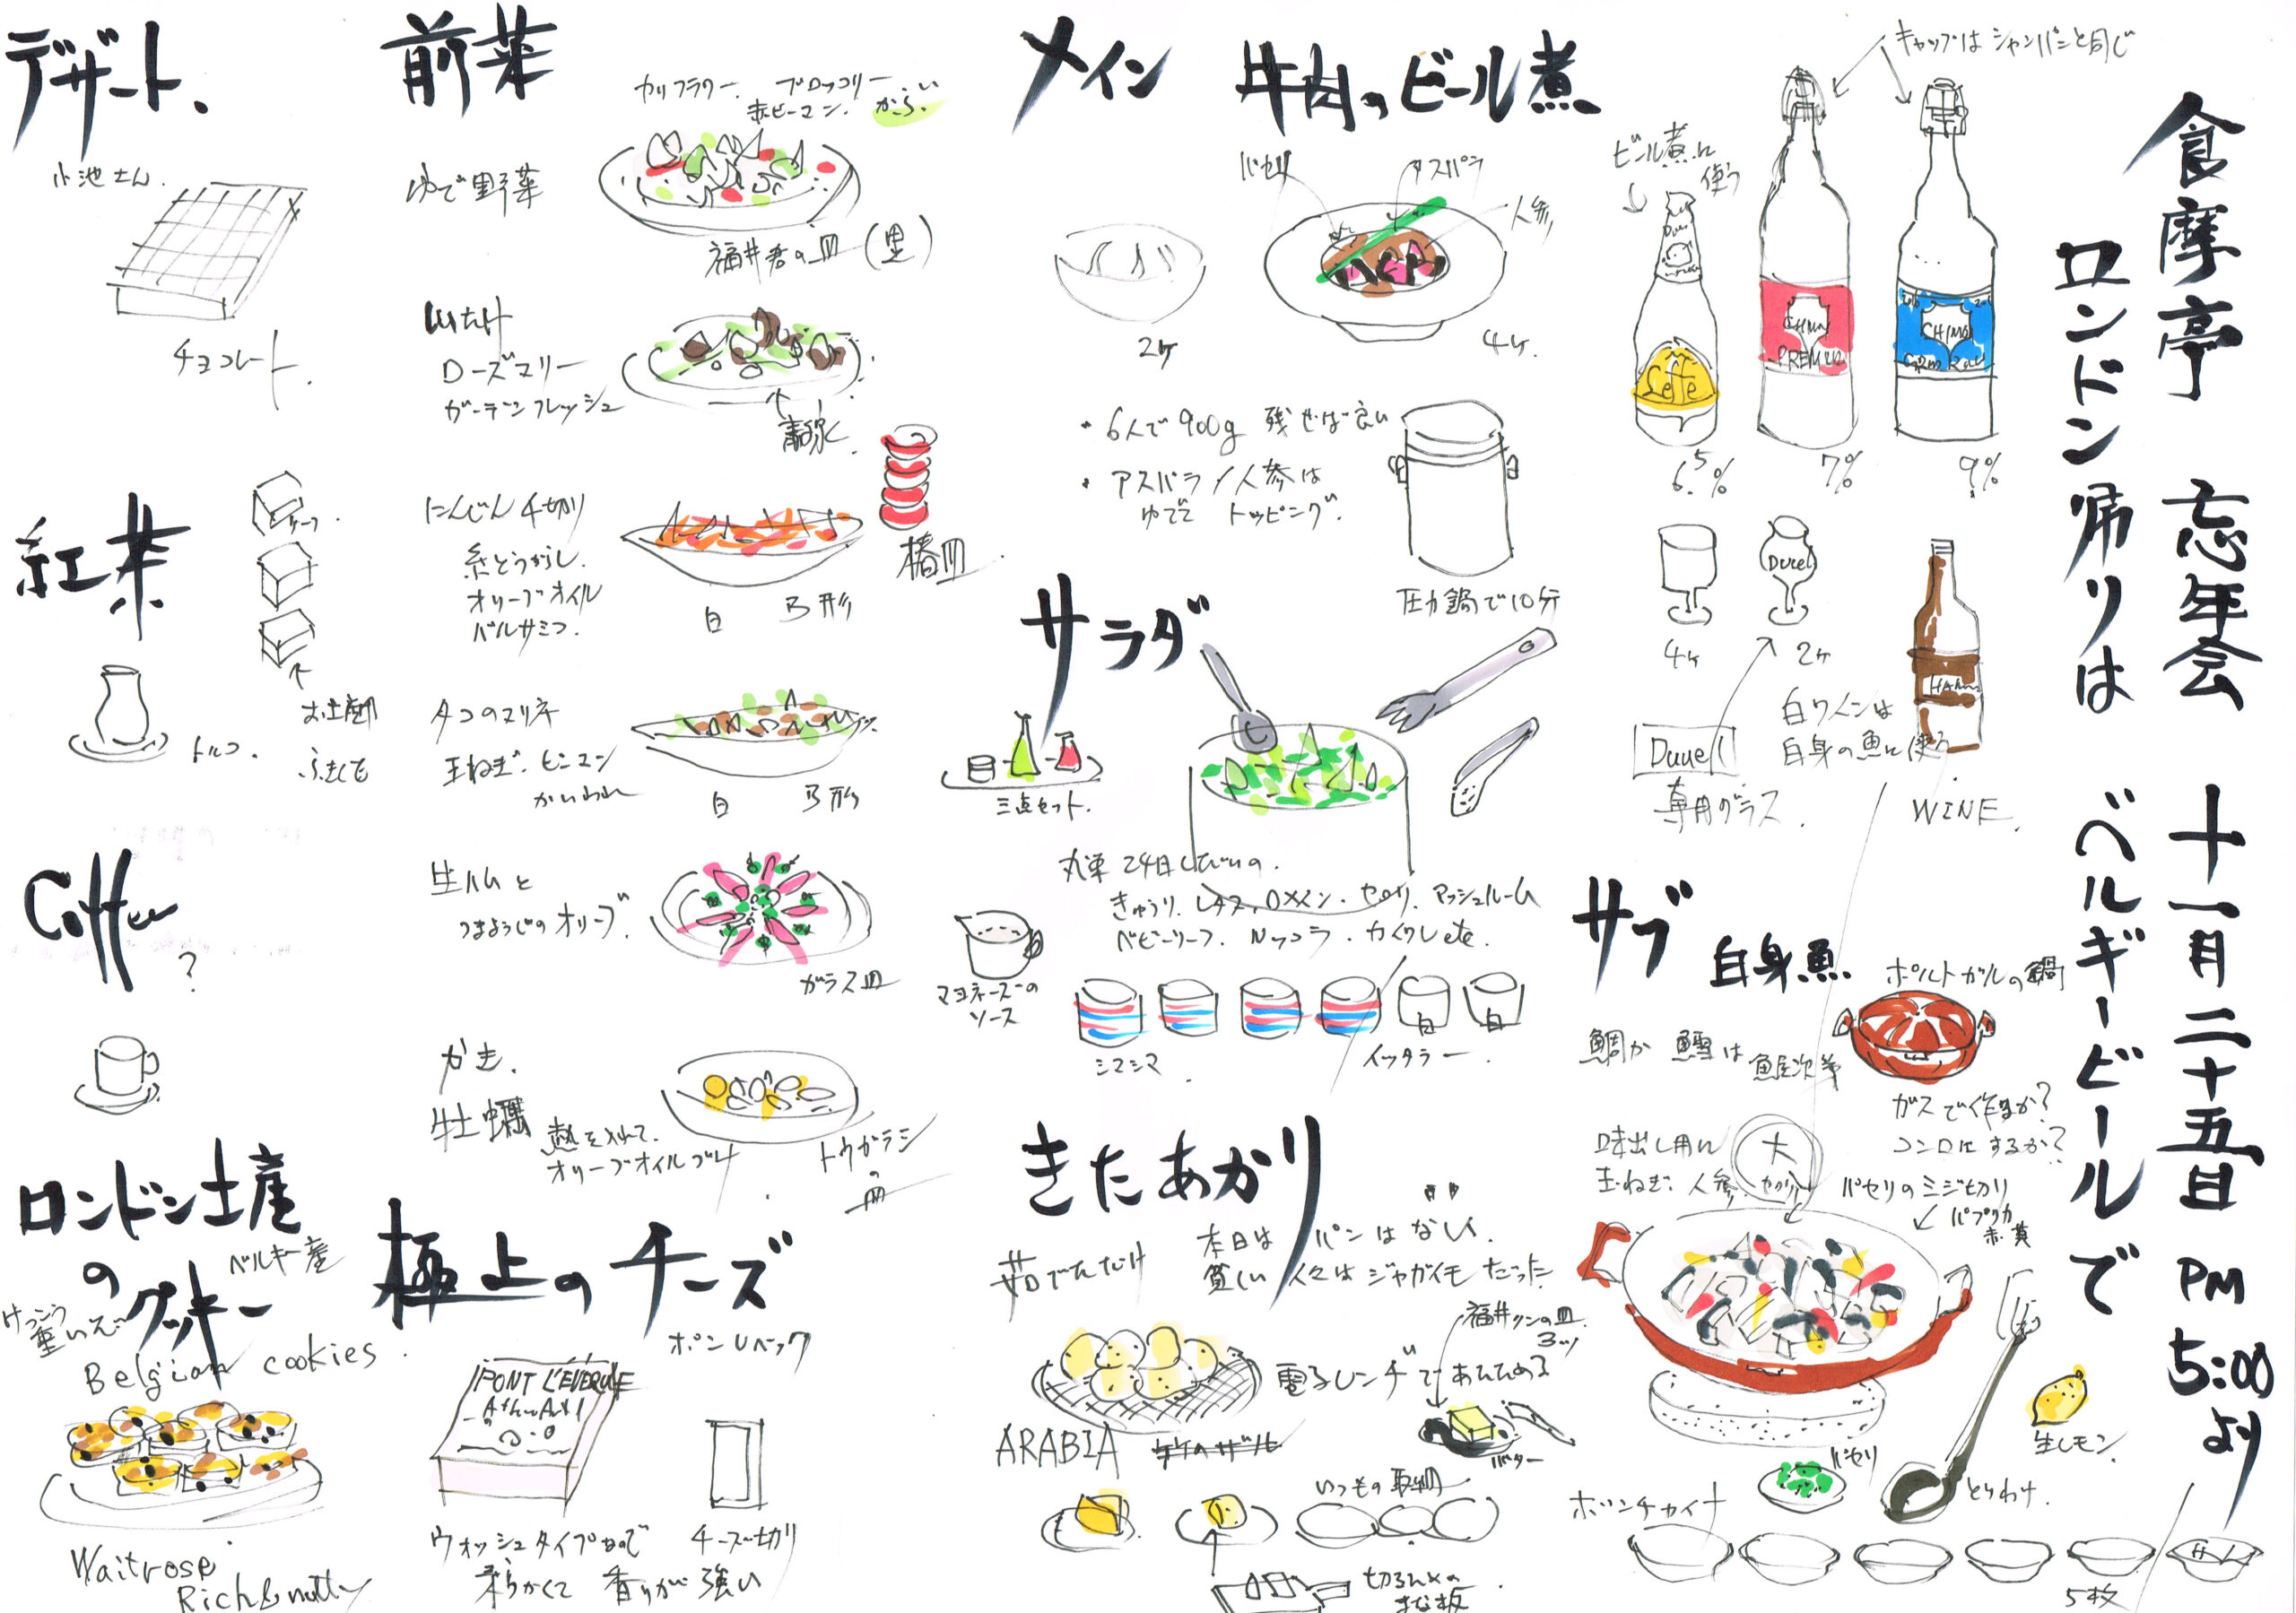 食摩亭 忘年会 十一月二十五日 PM 5:00 より
ロンドン帰りは ベルギービールで
キャップは シャンパンと同じ
ビール煮に
使う
6.5%
7%
9%
CHIMAY
PREMIER
CHIMAY
4ヶ
2ヶ
Duvel
Duvel
専用グラス
白ワインは
白身の魚に使う
WINE
メイン 牛肉のビール煮
パセリ
アスパラ
人参
2ヶ
4ヶ
・6人で900g 残せば良い
・アスパラ/人参は
ゆでて トッピング
圧力鍋で10分
サラダ
三点セット
きゅうり、レタス、ロメイン、セロリ、マッシュルーム
ベビーリーフ、ルッコラ、カイワレ etc.
シマシマ
白
白
イッタラー
マヨネーズの
ソース
サブ 白身魚
ポルトガルの鍋
鯛か 鱈は 魚屋次第
ガスで作るか?
コンロにするか?
味出し用に
玉ねぎ、人参、セロリ
大
パセリのミジ切り
パプリカ
赤・黄
生レモン
パセリ
とりわけ
ボンチャイナ
5枚
きたあかり
茹でただけ
本日は パンはない
貧しい 人々は ジャガイモ だった
福井クンの皿
3ツ
電子レンジで あたためる
ARABIA
バター
いつもの 取皿
切るための
まな板
前菜
カリフラワー ブロッコリー
赤ピーマン からい
ゆで野菜
福井君の皿 (黒)
ローズマリー
ガーデンフレッシュ
椿皿
にんじん千切り
糸とうがらし
オリーブオイル
バルサミコ
白
タコのマリネ
玉ねぎ、ピーマン
かいわれ
白
生ハムと
つまようじのオリーブ
ガラス皿
かき
牡蠣 熱を入れて
オリーブオイル
トウガラシ
の
皿
極上のチーズ
ポンレベック
PONT L'EVEQUE
ウォッシュタイプなので
柔らかくて 香りが 強い
チーズ切り
デザート
小池さん
チョコレート
紅茶
トルコ
お土産
Coffee
?
ロンドン土産
の
クッキー
ベルギー産
けっこう
重いえ〜
Belgian cookies
Waitrose
Rich & nutty